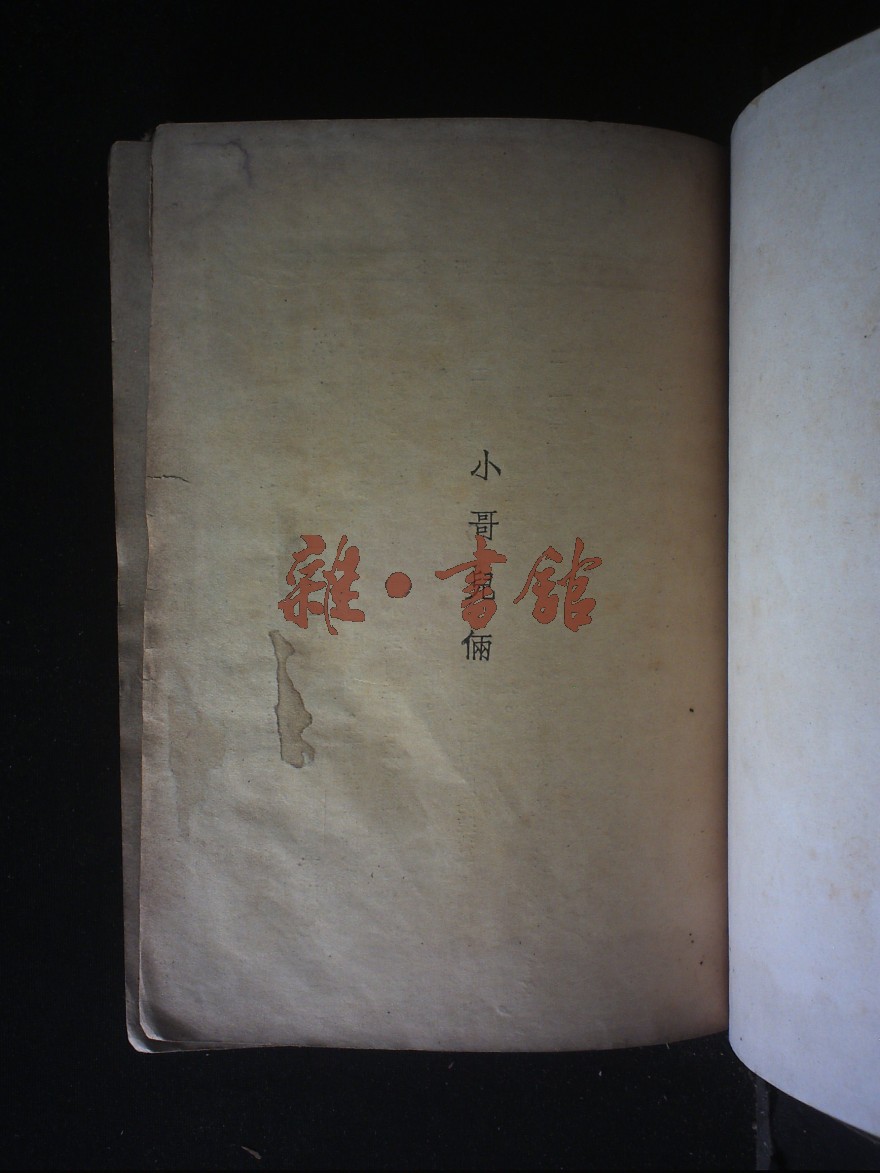 小哥兒倆
雜·書館